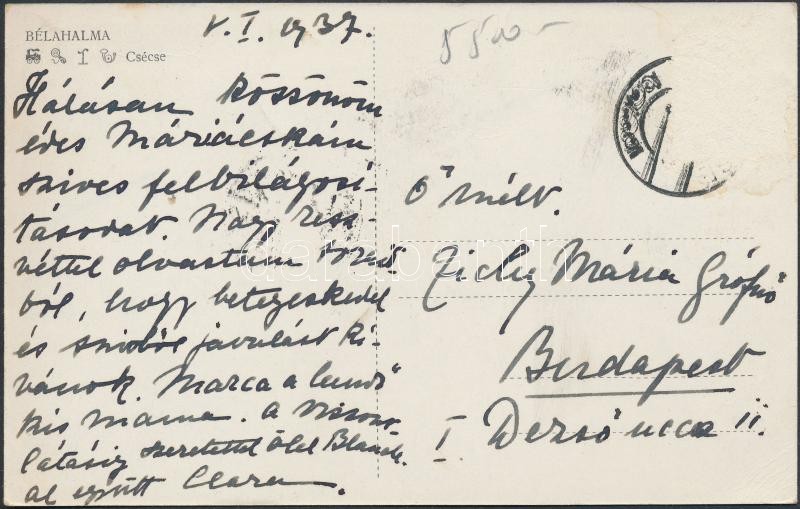 BÉLAHALMA
Csécse
V. I. 1937.
5500-
Hálásan köszönöm
édes Máriácskám
szives felvilágosi-
tásodat. Nagy rész-
véttel olvastum
ből, hogy betegeskedel
és javulást ki-
vánok. Marca a
kis mama. a viszont
látásig szeretettel ölel
al együtt Clara.
Ő mélt.
Zichy Mária Grófnő
Budapest
I Dezső ucca ii.
darabanth